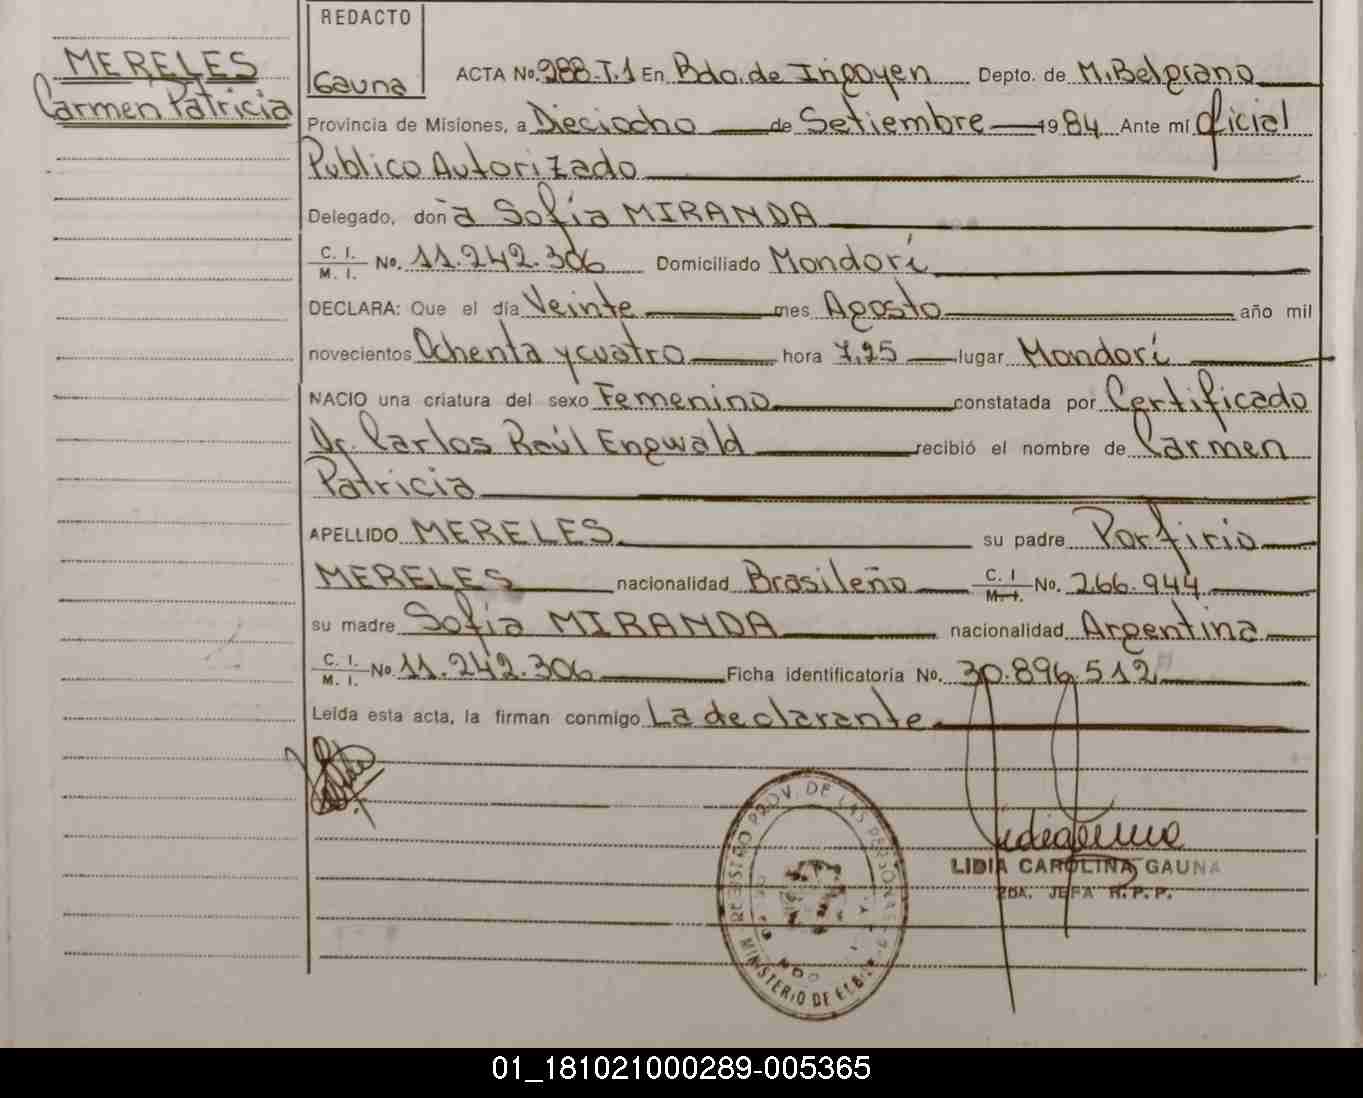 MERELES
Carmen Patricia
REDACTO
Gauna
ACTA No. 288-T.1 En Bdo. de Irigoyen Depto. de M. Belgrano
Provincia de Misiones, a Dieciocho de Setiembre 1984 Ante mí Oficial
Publico Autorizado
Delegado, don a Sofía MIRANDA
C. I.
M. I. No. 11.242.306 Domiciliado Mondorí
DECLARA: Que el día Veinte mes Agosto año mil
novecientos Ochenta y cuatro hora 7,25 lugar Mondorí
NACIO una criatura del sexo Femenino constatada por Certificado
Dr. Carlos Raúl Engwald recibió el nombre de Carmen
Patricia
APELLIDO MERELES su padre Porfirio
MERELES nacionalidad Brasileño C. I M. I. No. 266.944
su madre Sofía MIRANDA nacionalidad Argentina
C. I. M. I. No 11.242.306 Ficha identificatoria No. 30.896.512
Leída esta acta, la firman conmigo La declarante
REGISTRO PROV. DE LAS PERSONAS
MINISTERIO DE
LIDIA CAROLINA GAUNA
2DA. JEFA R.P.P.
01_181021000289-005365